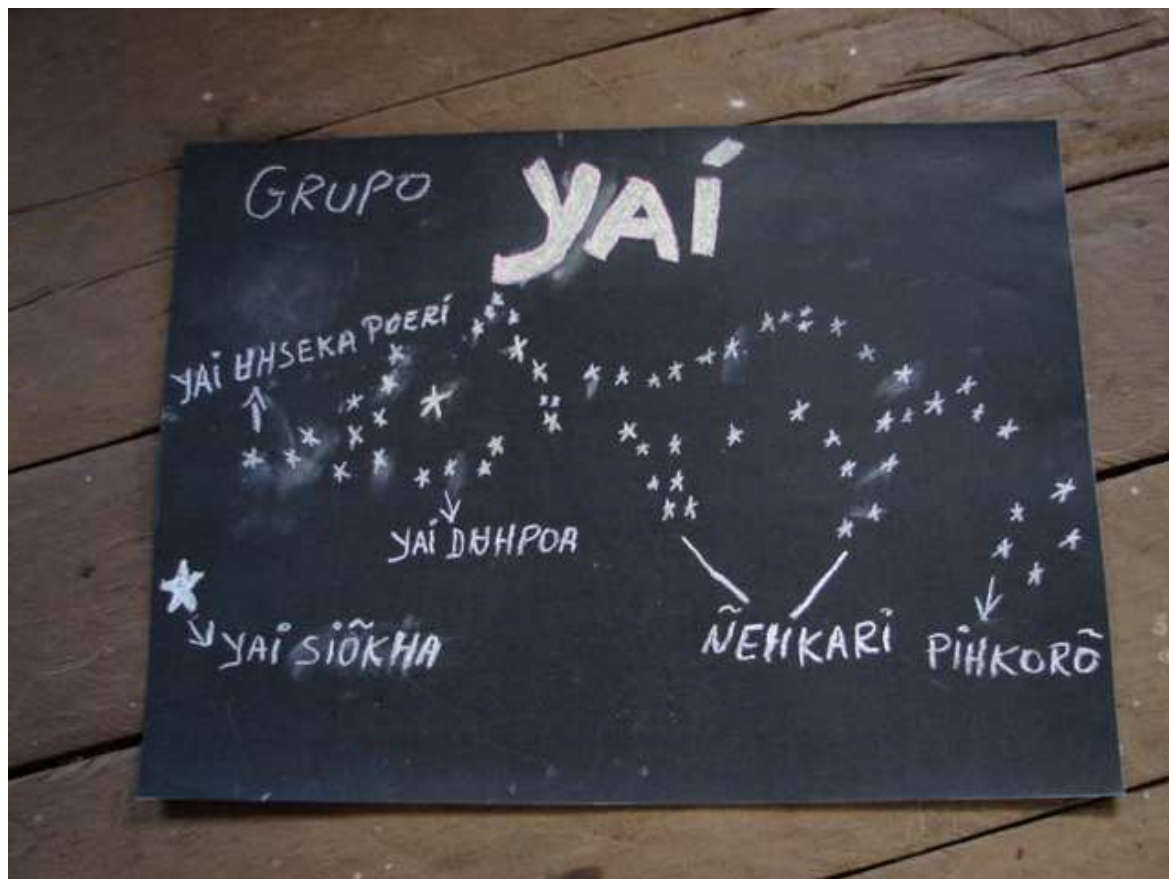 GRUPO
YAí
YAi ʉHSEKA POERí
YAí DʉHPOA
YAi SiÕKHA
ÑEHKARi
PiHKORÕ